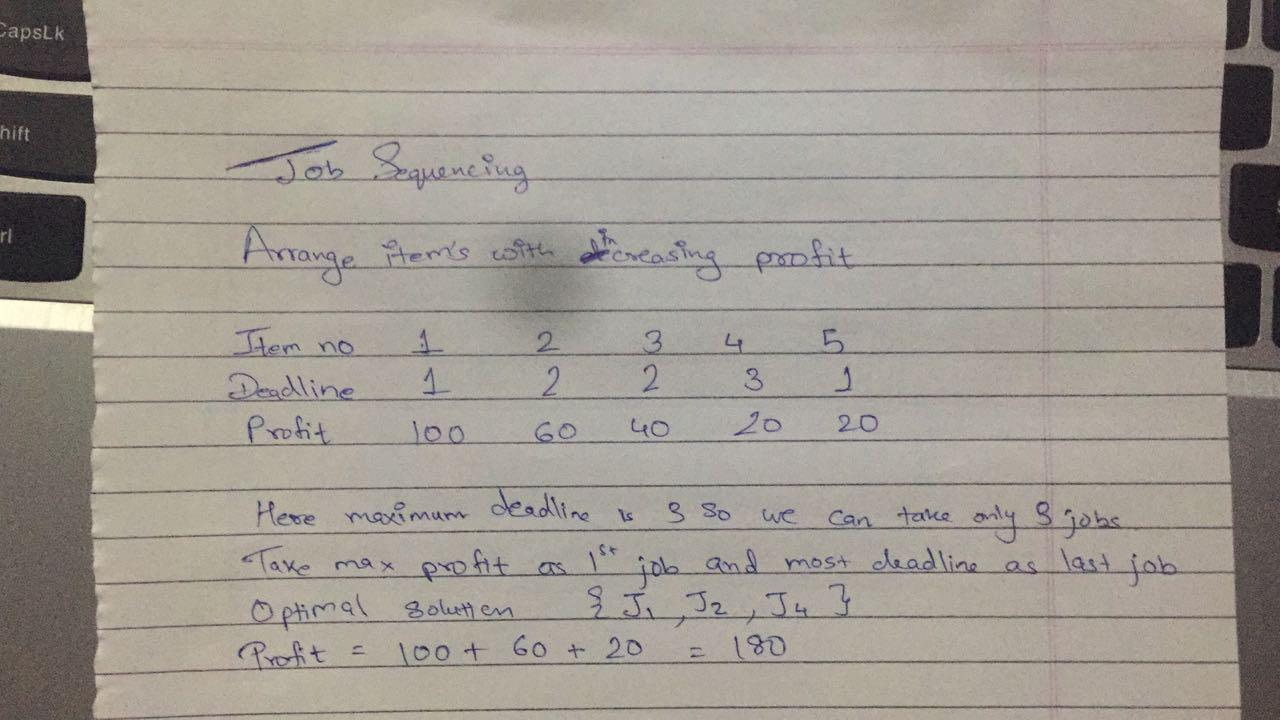 CapsLk
hift
rl
Job Sequencing
Arrange item's with increasing profit
Item no 1 2 3 4 5
Deadline 1 2 2 3 1
Profit 100 60 40 20 20
Here maximum deadline is 3 so we can take only 3 jobs
Take max profit as 1st job and most deadline as last job
Optimal solution { J1, J2, J4 }
Profit = 100 + 60 + 20 = 180